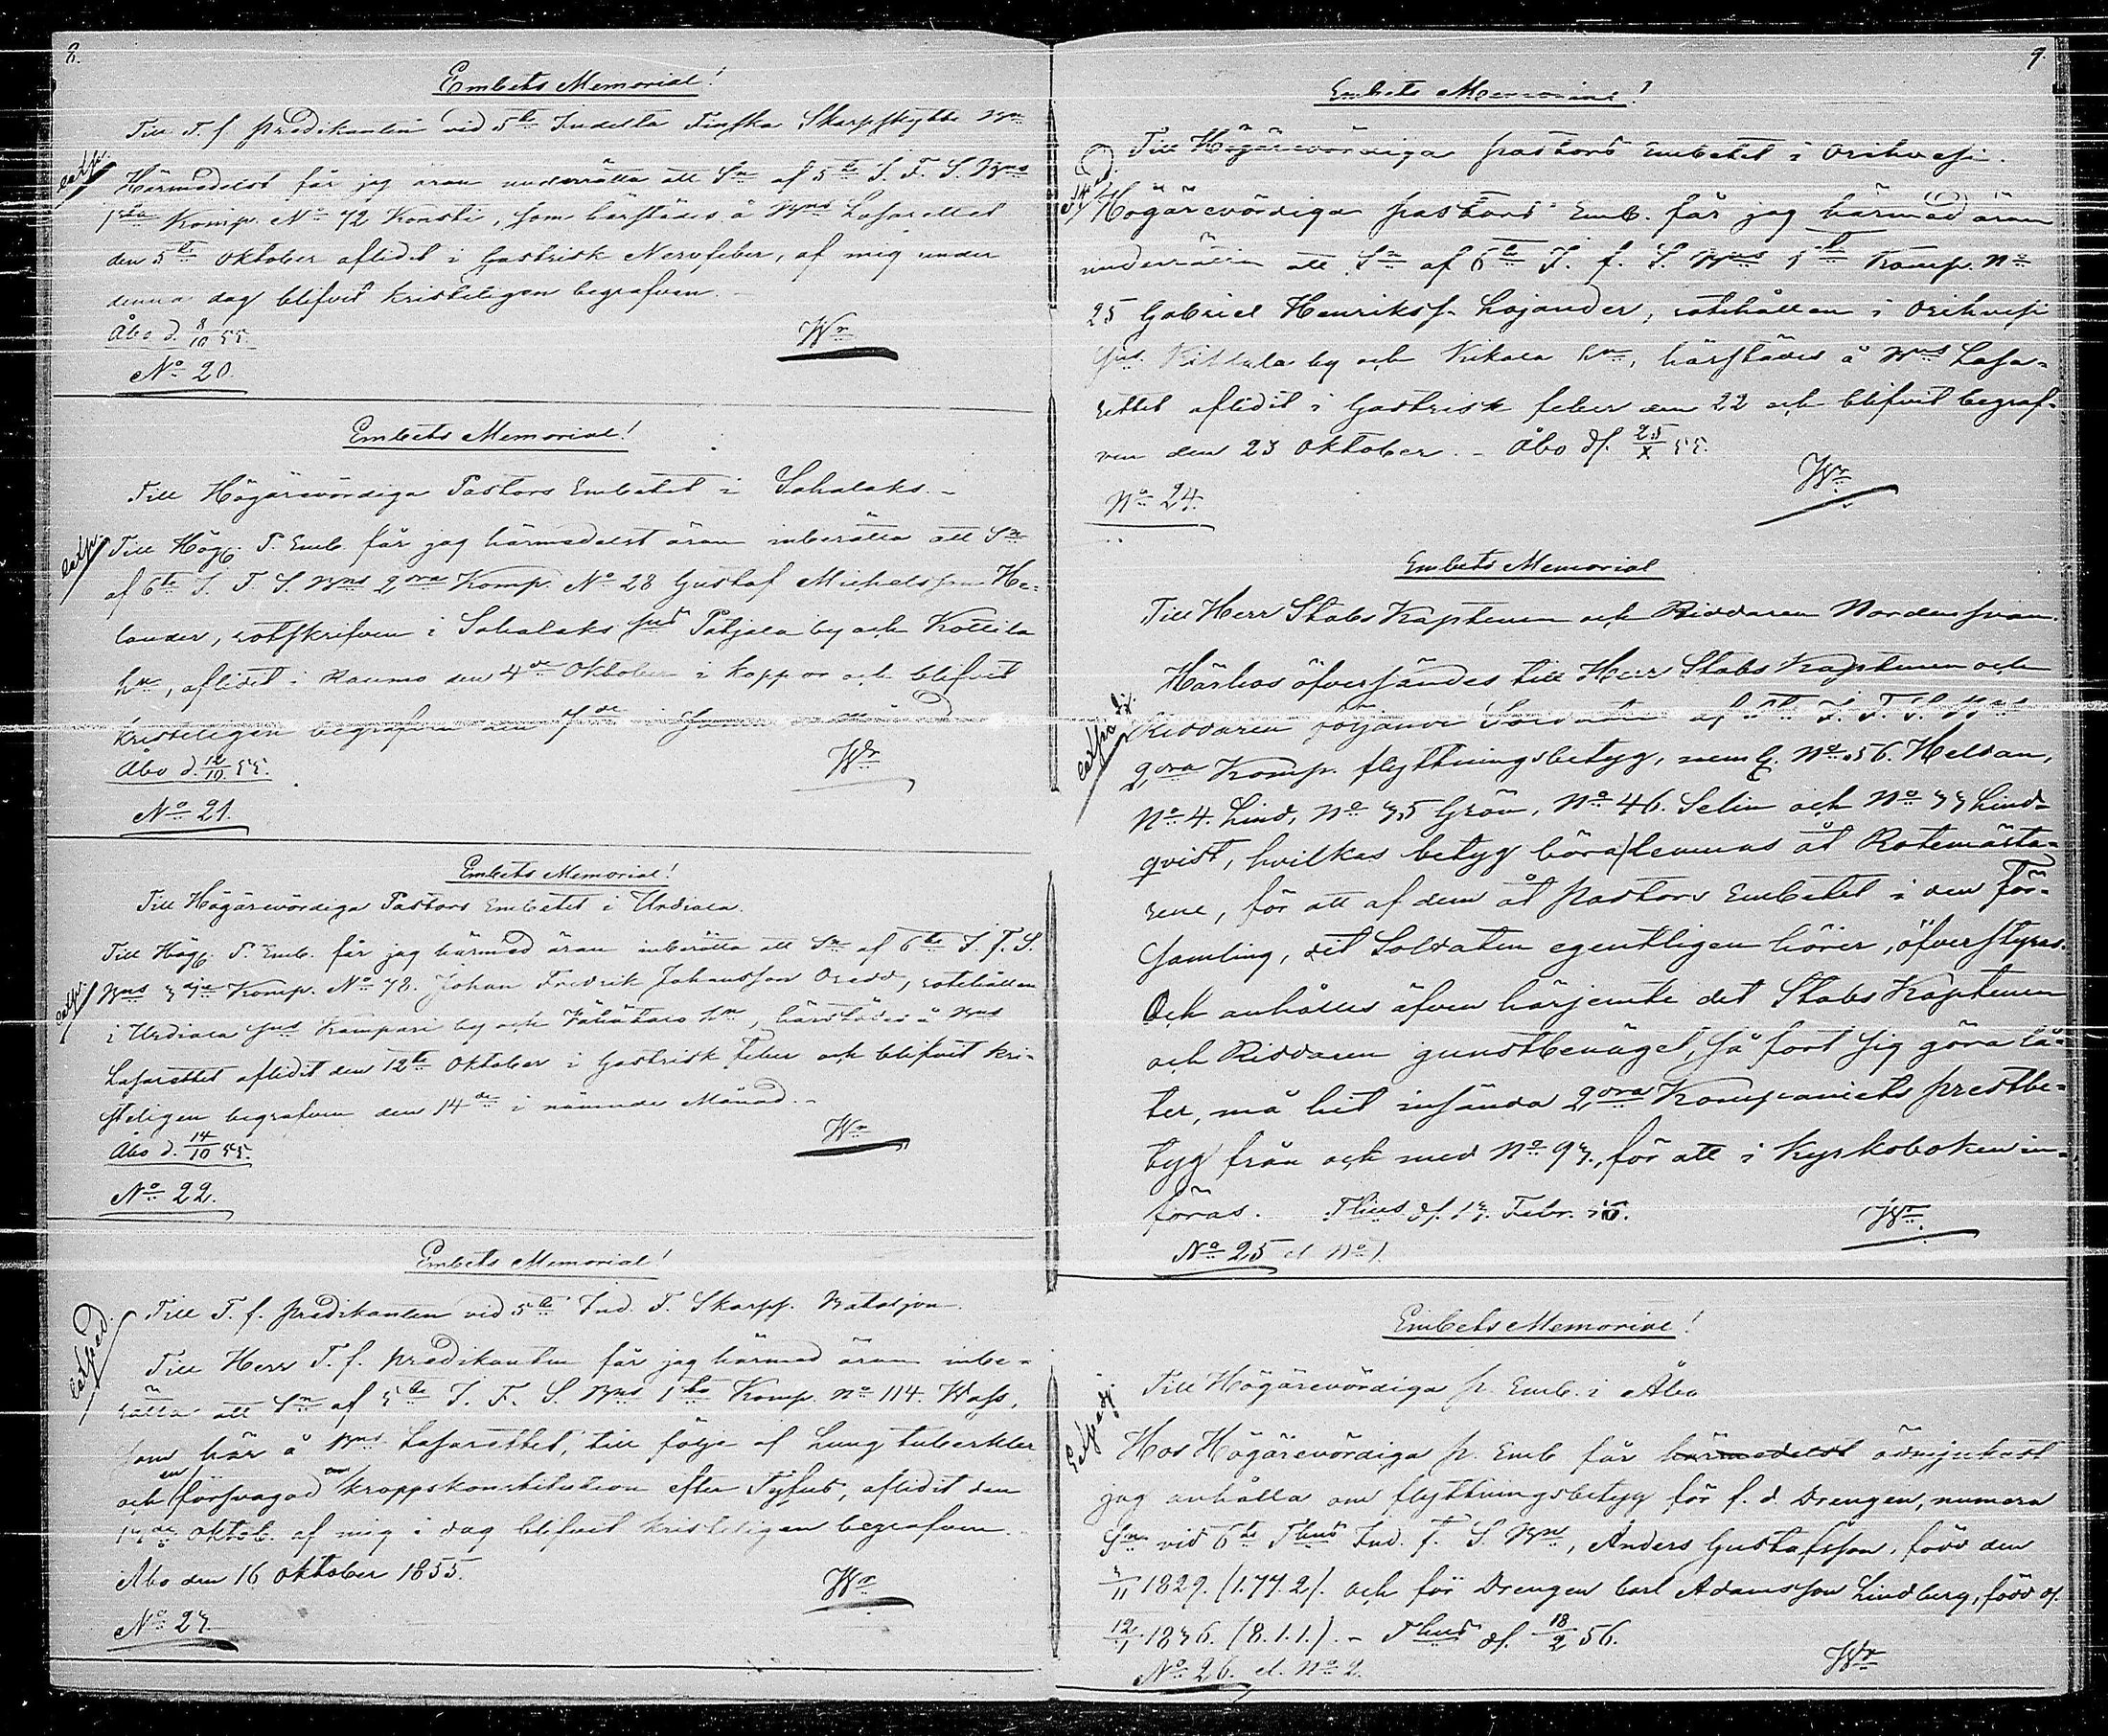 8.
Embets Memorial!
Till T. f. Predikanten vid 5te Indelta Finska Skarpskytte Bn
Härmedelst får jag äran underrätta att Sn af 5te I. F. S. Bns
1sta Komp. No 72 Konsti, som härstädes å Bns Lasarettet
den 5te Oktober aflidit i Gastrisk Nervfeber, af mig under
denna dag blifvit kristeligen begrafven.
Åbo d. 8/10 55.
Wn
No 20.
Embets Memorial!
Till Högärevördiga Pastors Embetet i Sahalaks.
Till Hög. P. Emb. får jag härmedelst äran inberätta att Sn
af 6te I. F. S. Bns 2dra Komp. No 28 Gustaf Michelsson He-
lander, rotskrifven i Sahalaks Sns Pakjala by och Kottila
hn, aflidit i Raumo den 4de Oktober i koppor och blifvit
kristeligen begrafven den 7de i samma månad
Åbo d. 12/10 55.
Wn
No 21.
Embets Memorial!
Till Högärevördiga Pastors Embetet i Urdiala.
Till Hög. P. Emb. får jag härmed äran inberätta att Sn af 6te I. F. S.
Bns 3dje Komp. No 78. Johan Fredrik Johansson Oredd, rotehållen
i Urdiala Sns Kampari by och hn, härstädes å Bns
Lasarettet aflidit den 12te Oktober i Gastrisk feber och blifvit kri-
steligen begrafven den 14de i nämnde Månad.
Åbo d. 14/10 55.
Wn
No 22.
Embets Memorial!
Exped.
Till T. f. Predikanten vid 5te Ind. F. Skarpsk. Bataljon.
Till Herr T. f. Predikanten får jag härmed äran inbe-
rätta att Sn af 5te I. F. S. Bns 1sta Komp. No 114. Wass,
som här å Bns Lasarettet, till följe af Lungtuberkler
och en försvagad kroppskonstitution efter Tyfus, aflidit den
13de Oktob. af mig i dag blifvit kristeligen begrafven.
Åbo den 16 Oktober 1855.
Wn
No 23.
9.
Embets Memorial!
Till Högärevördiga Pastors Embetet i Orihvesi.
Högärevördiga Pastors Emb. får jag härmed äran
underrätta att Sn af 6te I. F. S. Bns 1sta Komp. No
25 Gabriel Henrikss. Lojander, rotehållen i Orihvesi
Sns Pitkula by och Kukala hn, härstädes å Bns Lasa-
rettet aflidit i Gastrisk feber den 22 och blifvit begraf-
ven den 23 Oktober. – Åbo d. 25/X 55.
Wn
No 24.
Embets Memorial
Till Herr Stabs Kaptenen och Riddaren Nordensvan.
Härhos öfversändes till Herr Stabs Kaptenen och
Riddaren följande Soldaters af 6te I. F. S. Bns
2dra Komp. flyttningsbetyg, neml. No 56. Heldan,
No 4. Lind, No 35 Grön, No 46. Selin och No 33 Lind-
qvist, hvilkas betyg böra lemnas åt Rotemästa-
rene, för att af dem åt Pastors Embetet i den För-
samling, dit Soldaten egentligen hörer, öfverstyras.
Och anhålles äfven härjemte det Stabs Kaptenen
och Riddaren gunstbenäget, så fort sig göra lå-
ter, må hit insända 2dra Kompaniets prestbe-
tyg från och med No 93, för att i Kyrkoboken in-
föras. Thus d. 13. Febr. 56.
Wn
No 25 el. No 1.
Embets Memorial!
Till Högärevördiga P. Emb. i Åbo
Hos Högärevördiga P. Emb får härmedelst ödmjukast
jag anhålla om flyttningsbetyg för f. d. Drengen, numera
Sn vid 6te Thus Ind. F. S. Bn, Anders Gustafsson, född den
3/11 1829. (1.77.2). och för Drengen Carl Adamsson Lindberg, född d.
12/1 1836. (8.1.1.). – Thus d. 18/2 56.
Wn
No 26. el. No 2.